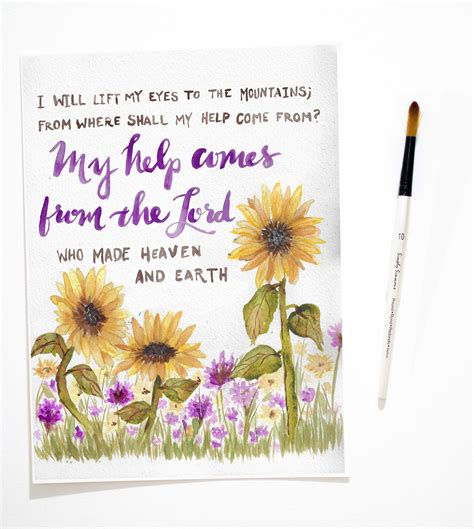 I WILL LIFT MY EYES TO THE MOUNTAINS;
FROM WHERE SHALL MY HELP COME FROM?
My help comes
from the Lord
WHO MADE HEAVEN
AND EARTH
10
Simply Simmons